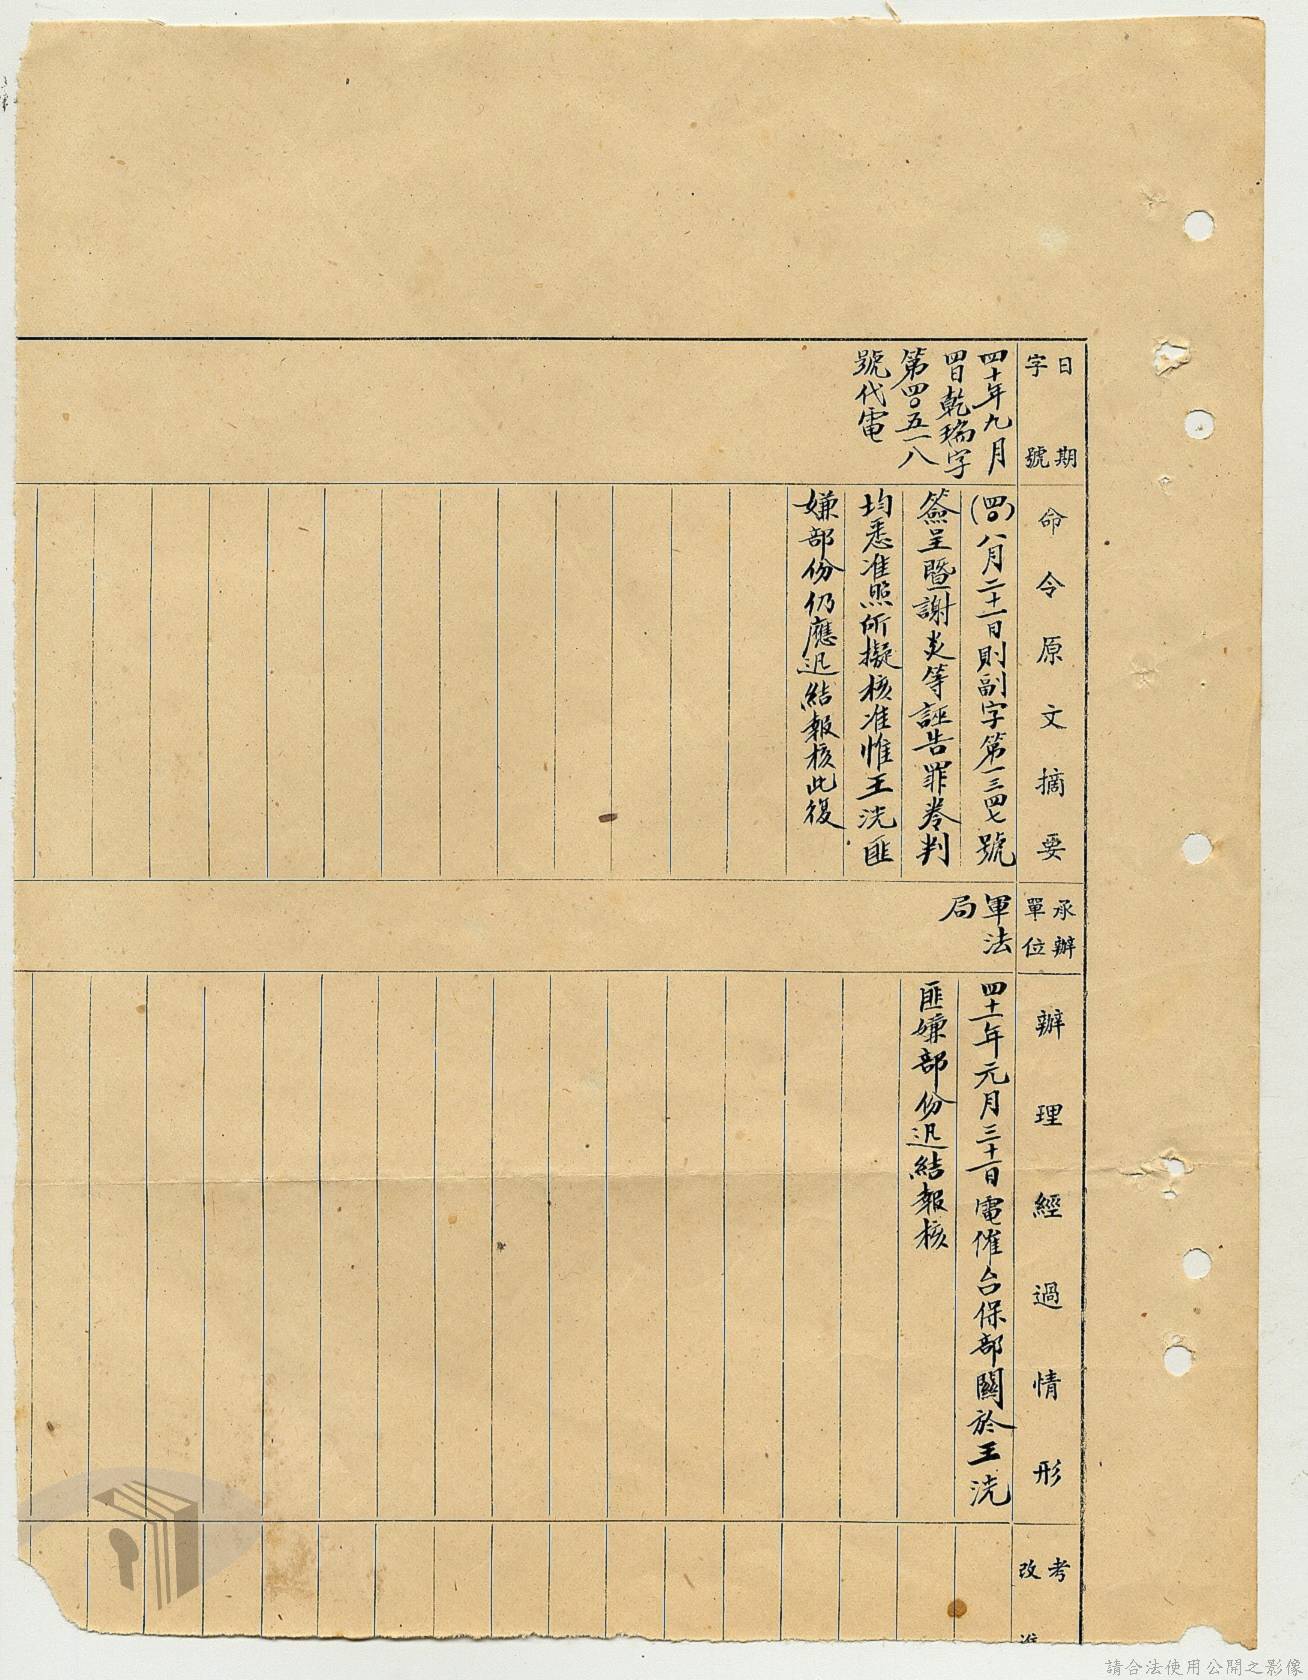 日期
字號
四十年九月
四日乾瑞字
第四〇五一八
號代電
命令原文摘要
(四〇)八月二十一日則副字第一三四七號
簽呈暨謝炎等誣告罪卷判
均悉准照所擬核准惟王洸匪
嫌部份仍應迅結報核此復
承辦
單位
軍法
局
辦理經過情形
四十一年元月三十一日電催台保部關於王洸
匪嫌部份迅結報核
考
改
請合法使用公開之影像